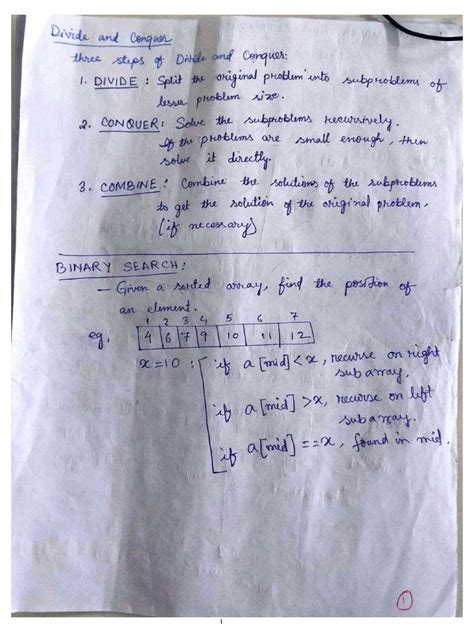 Divide and Conquer
three steps of Divide and Conquer:
1. DIVIDE : Split the original problem into subproblems of
lesser problem size.
2. CONQUER: Solve the subproblems recursively.
If the problems are small enough, then
solve it directly.
3. COMBINE : Combine the solutions of the subproblems
to get the solution of the original problem.
(if necessary)
BINARY SEARCH:
— Given a sorted array, find the position of
an element.
1 2 3 4 5 6 7
eg. 4 6 7 9 10 11 12
x=10 : if a[mid] < x, recurse on right
subarray.
if a[mid] > x, recurse on left
subarray.
if a[mid] == x, found in mid.
1
1